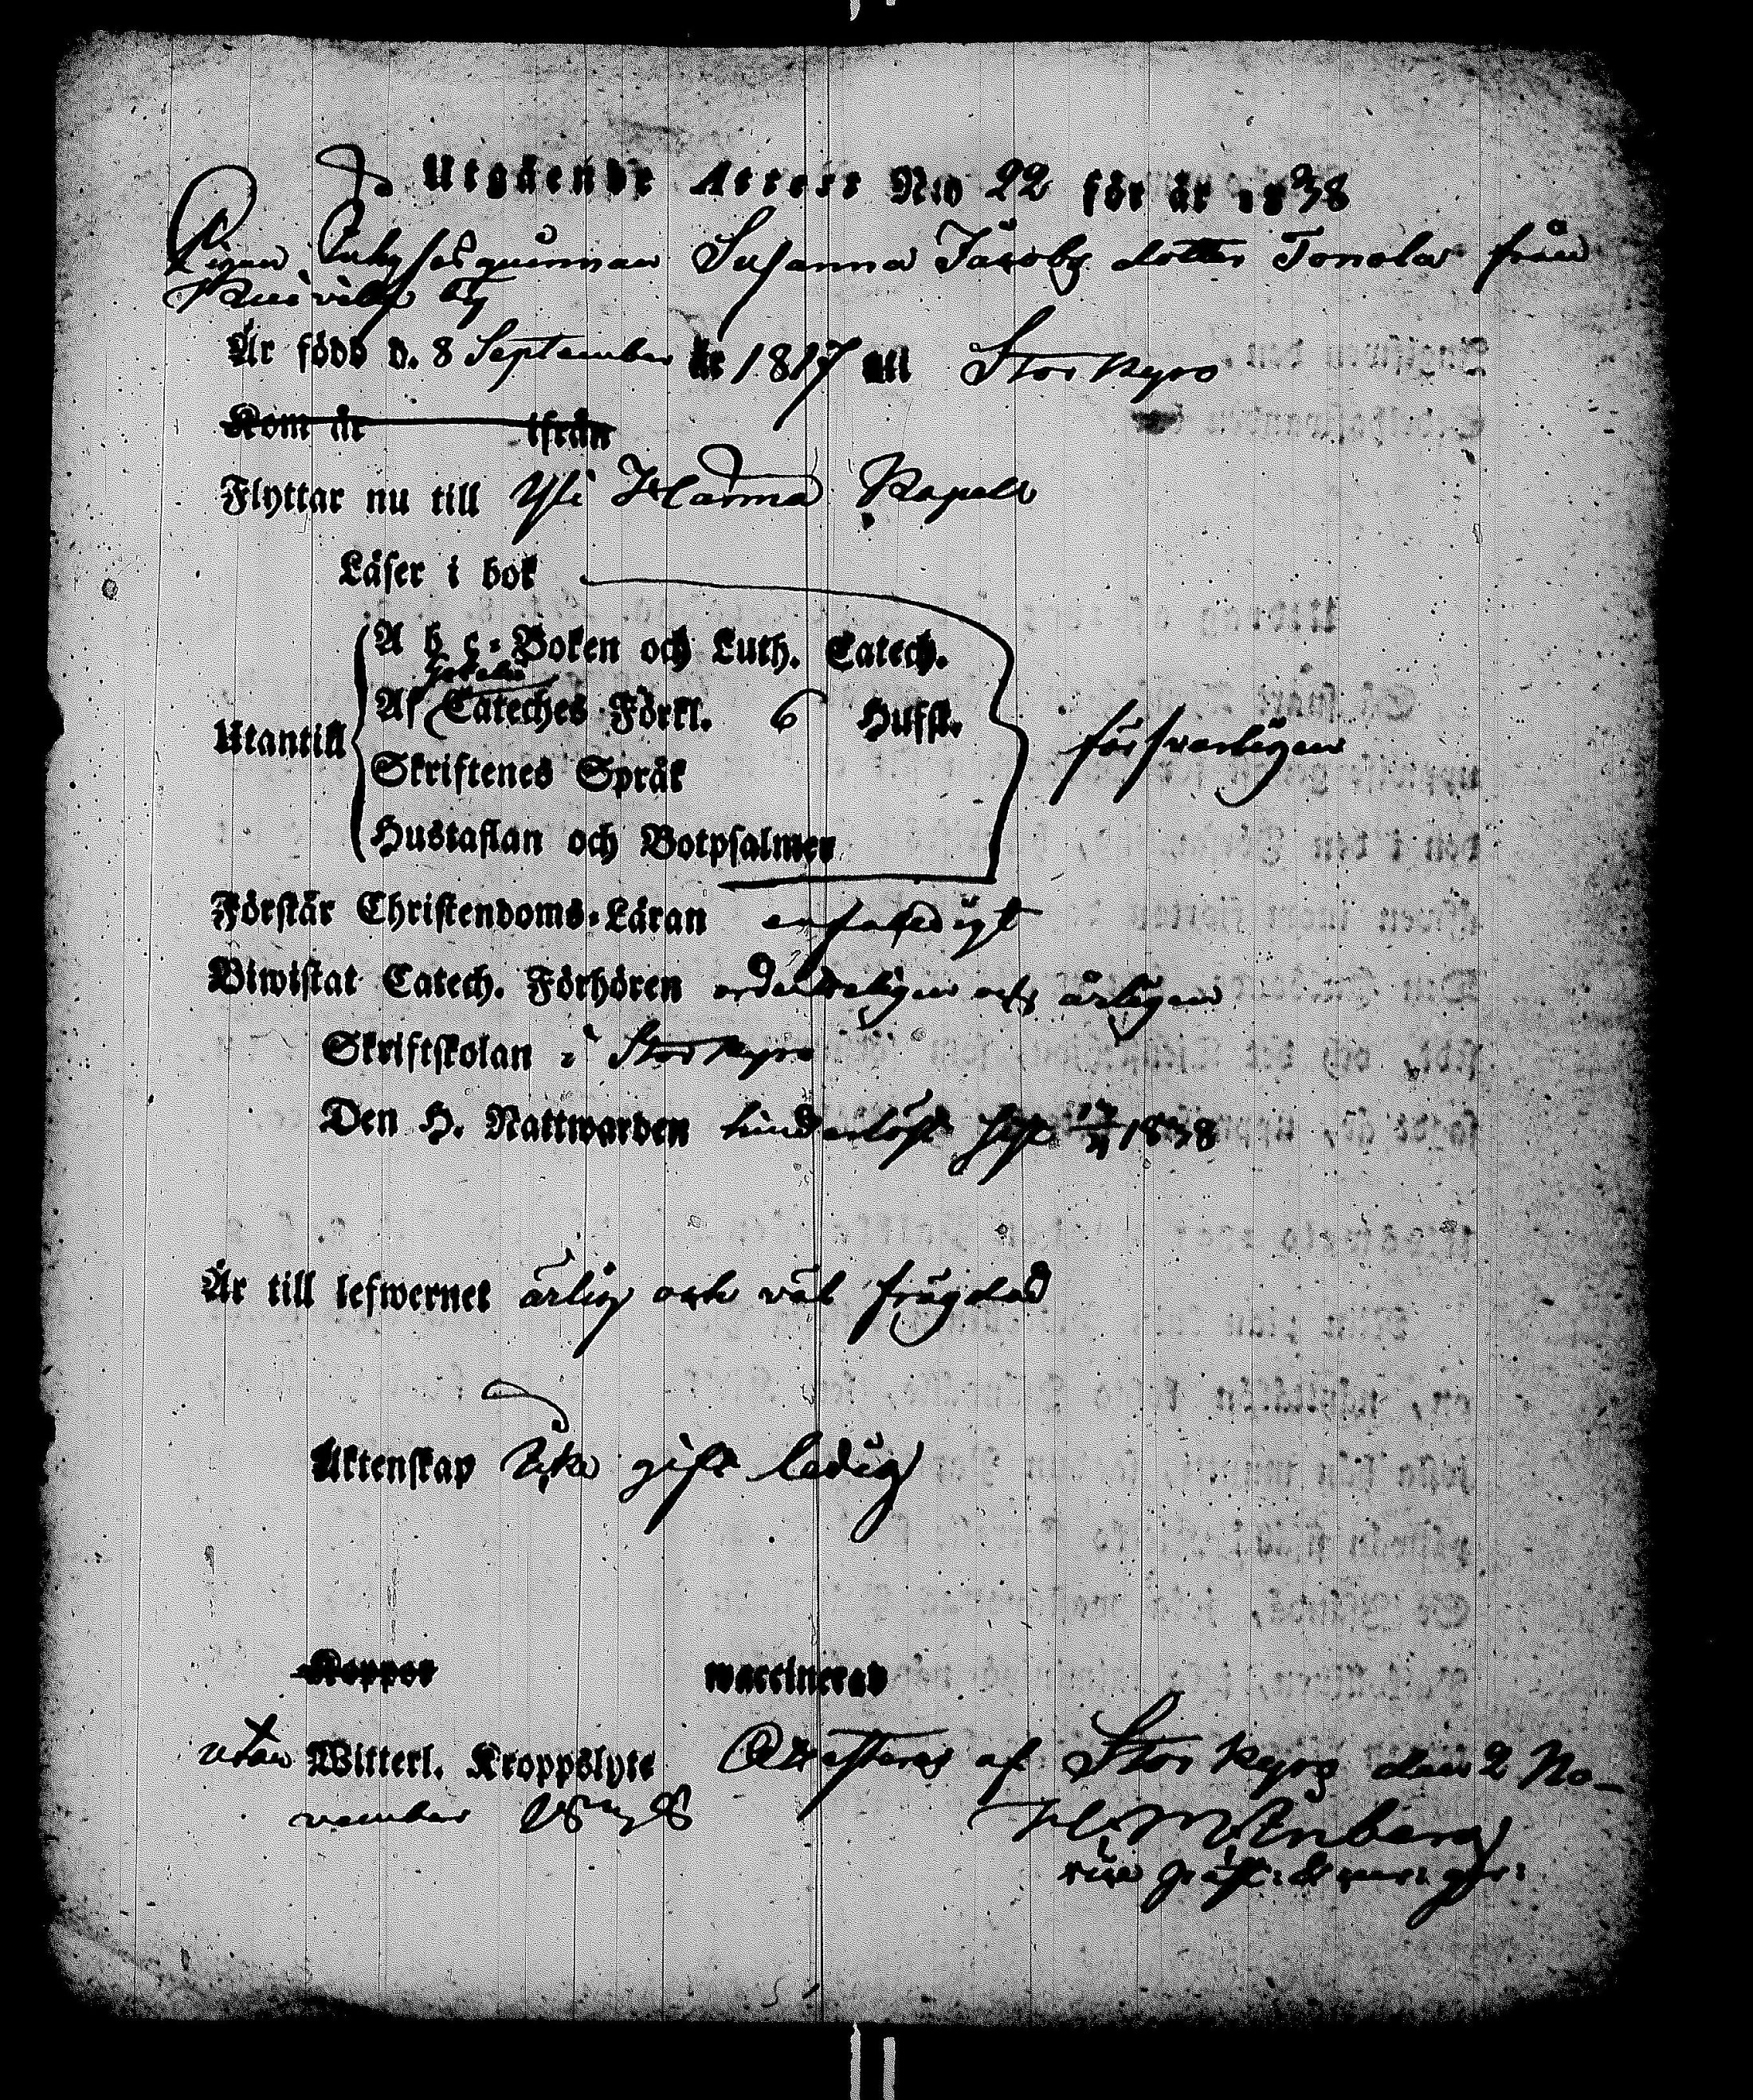 Utgående Attest N:o 22 för år 1838
Pigan Susanna Jacobs dotter Tonola från
by
Är född d. 8 September år 1817 uti Storkyro
Kom år ifrån
Flyttar nu till Ylihärmä Kapell
Läser i bok
A b c-Boken och Luth. Catech.
Af Cateches Förkl. 6 Hufst.
Utantill försvarligen
Skriftenes Språk
Hustaflan och Botpsalmer
Förstår Christendoms-Läran enfaldigt
Biwistat Catech. Förhören ordenteligen och årligen
Skriftskolan i Storkyro
Den H. Nattwarden hinderlöst sist 1838
Är till lefwernet ärlig och väl frägdad
Äktenskap icke gift ledig
Koppor waccinerad
utan Witterl. Kroppslyte Attesteras af Storkyro den 2 No-
vember 1838